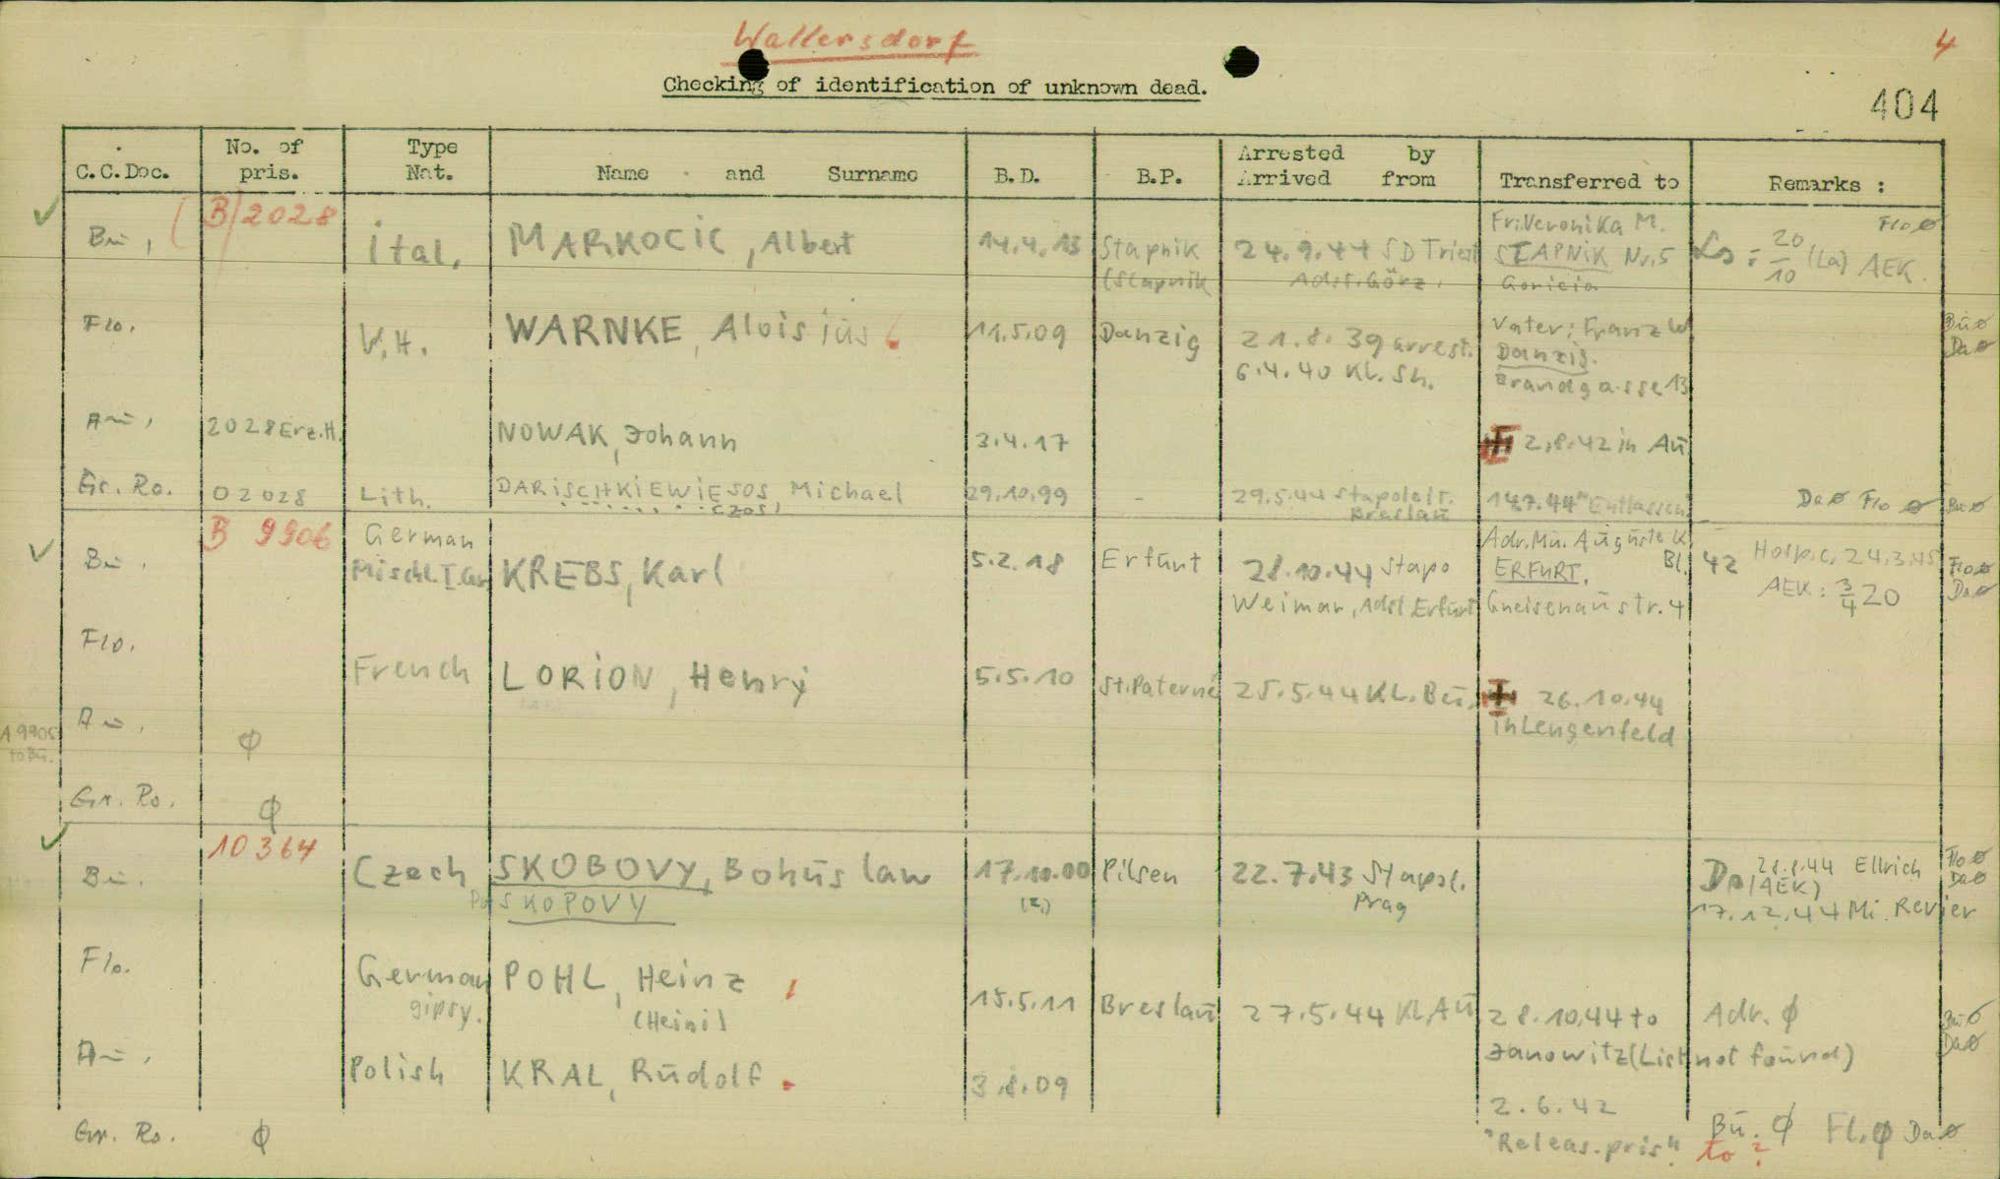 Wallersdorf
4
Checking of identification of unknown dead.
404
C.C.Doc. No. of pris. Type Nat. Name and Surname B.D. B.P. Arrested by Arrived from Transferred to Remarks :
B/2028
Bü, ital. MARKOCIC, Albert 14.4.13 Stapnik 24.9.44 SD Triest Fr:Veronika M. STAPNIK Nr.5 20/10 (La) AEK. Flo ø
(Slapnik Adst.Görz. Goricia
Flo. V.H. WARNKE, Aloisius 11.5.09 Danzig 21.8.39 arrest. Vater: Franz W Büø
6.4.40 Kl. Sh. Danzig. Daø
Brandgasse 13
Aü, 2028 Erz.H. NOWAK, Johann 3.4.17 2.8.42 in Aü
Gr. Ro. 02028 Lith. DARiSCHKiEWiESOS, Michael 29.10.99 - 29.5.44 Stapoleit. Breslaü 14.7.44 "Entlassen" Daø Flo ø Büø
(ZOS)
B 9906
Bü. German Mischl. I. Gr. KREBS, Karl 5.2.18 Erfürt 28.10.44 Stapo Adr. Mü. Aügüste K. Bl. 42 Hosp.c. 24.3.45 Floø
Weimar, Adst Erfürt ERFURT, Gneisenaüstr. 4 AEK: 3/4 20 Daø
Flo. French LORiON, Henry 5.5.10 St.Paterne 25.5.44 KL. Bü, 26.10.44
in Lengenfeld
A 9905
to Bü.
Aü. ø
Gr. Ro. ø
10364
Bü. Czech SKOBOVY, Bohüslaw 17.10.00 Pilsen 22.7.43 Stapol. Prag 28.8.44 Ellrich Floø
SKOPOVY Do (AEK) Daø
17.12.44 Mi. Revier
Flo. German gipsy. POHL, Heinz 15.5.11 Breslaü 27.5.44 Kl. Aü 28.10.44 to Adr. ø Büø
(Heini) Janowitz (List not foünd) Daø
Aü. Polish KRAL, Rüdolf 3.8.09
2.6.42
Gr. Ro. ø "Releas. pris". to ? Bü. ø Fl. ø Daø